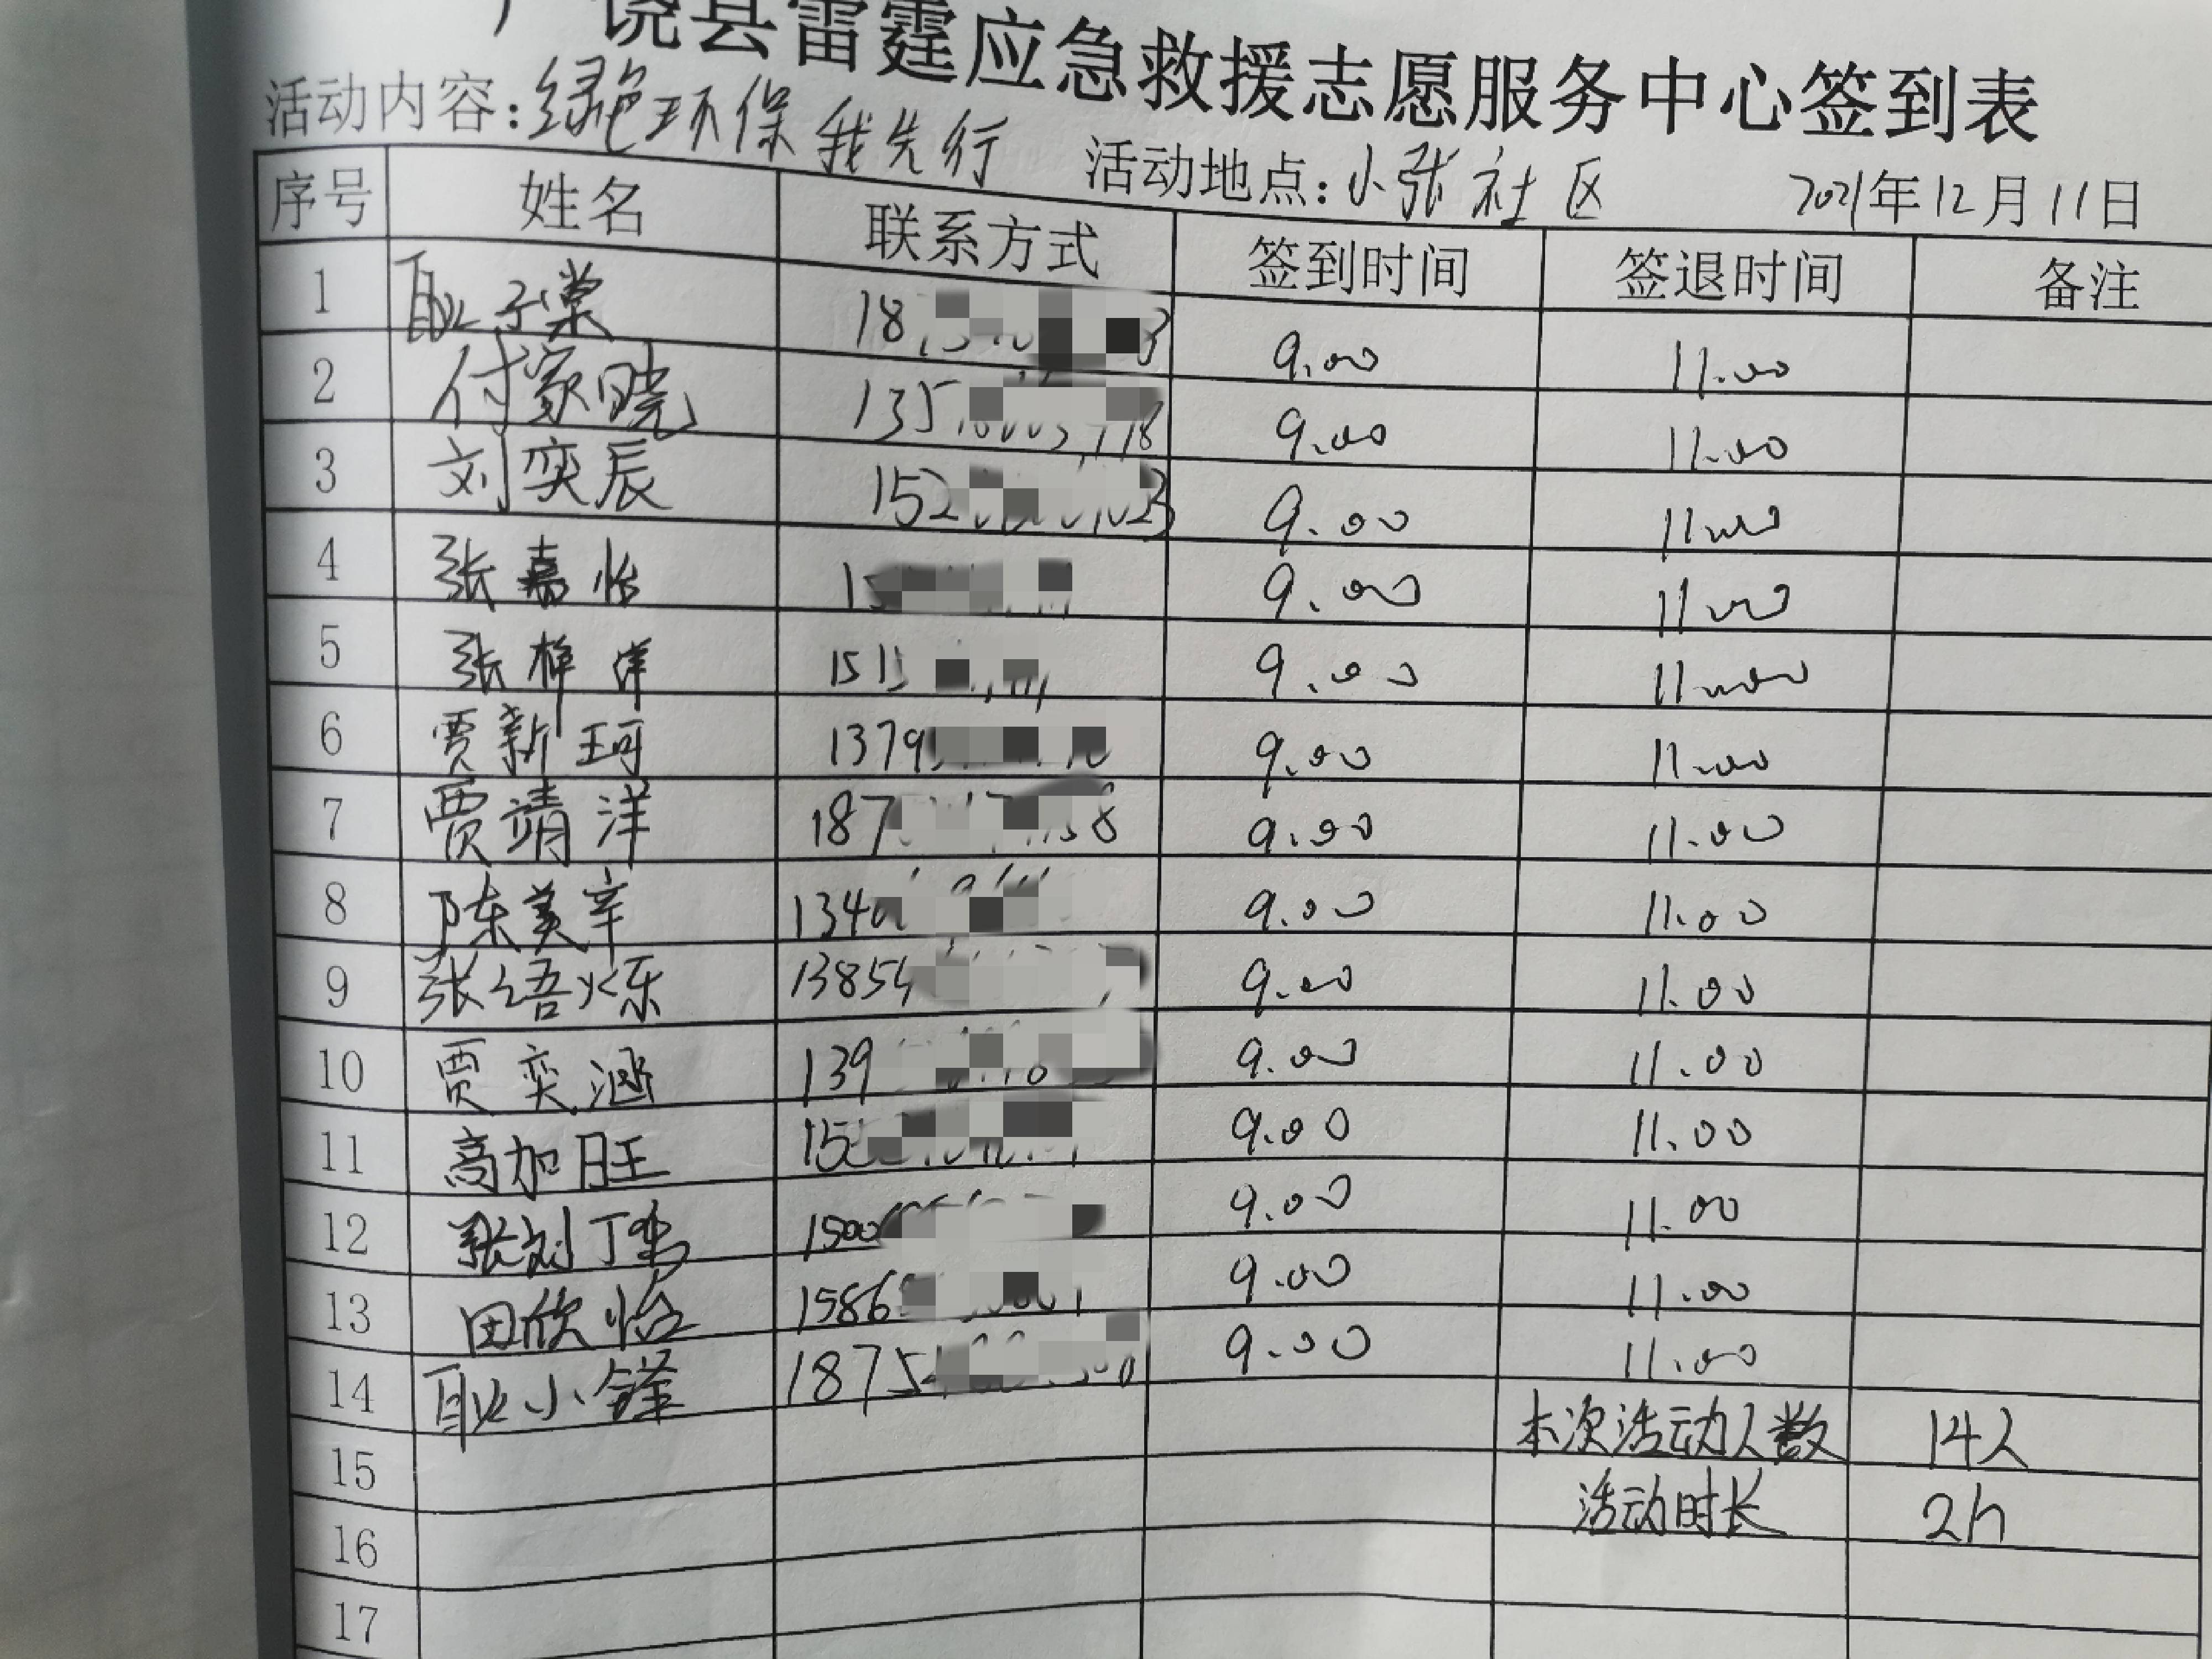 广饶县雷霆应急救援志愿服务中心签到表
活动内容:绿色环保我先行 活动地点:小张社区 2021年12月11日
序号 姓名 联系方式 签到时间 签退时间 备注
1 耿子棠 18 9.00 11.00
2 付家晓 135 9.00 11.00
3 刘奕辰 152 9.00 11.00
4 张嘉怡 15 9.00 11.00
5 张梓洋 151 9.00 11.00
6 贾新珂 1379 9.00 11.00
7 贾靖洋 187 8 9.00 11.00
8 陈美辛 134 9.00 11.00
9 张语烁 1385 9.00 11.00
10 贾奕涵 139 9.00 11.00
11 高加旺 15 9.00 11.00
12 张刘丁 1500 9.00 11.00
13 田欣怡 1586 9.00 11.00
14 耿小锋 1875 9.00 11.00
15 本次活动人数 14人
16 活动时长 2h
17